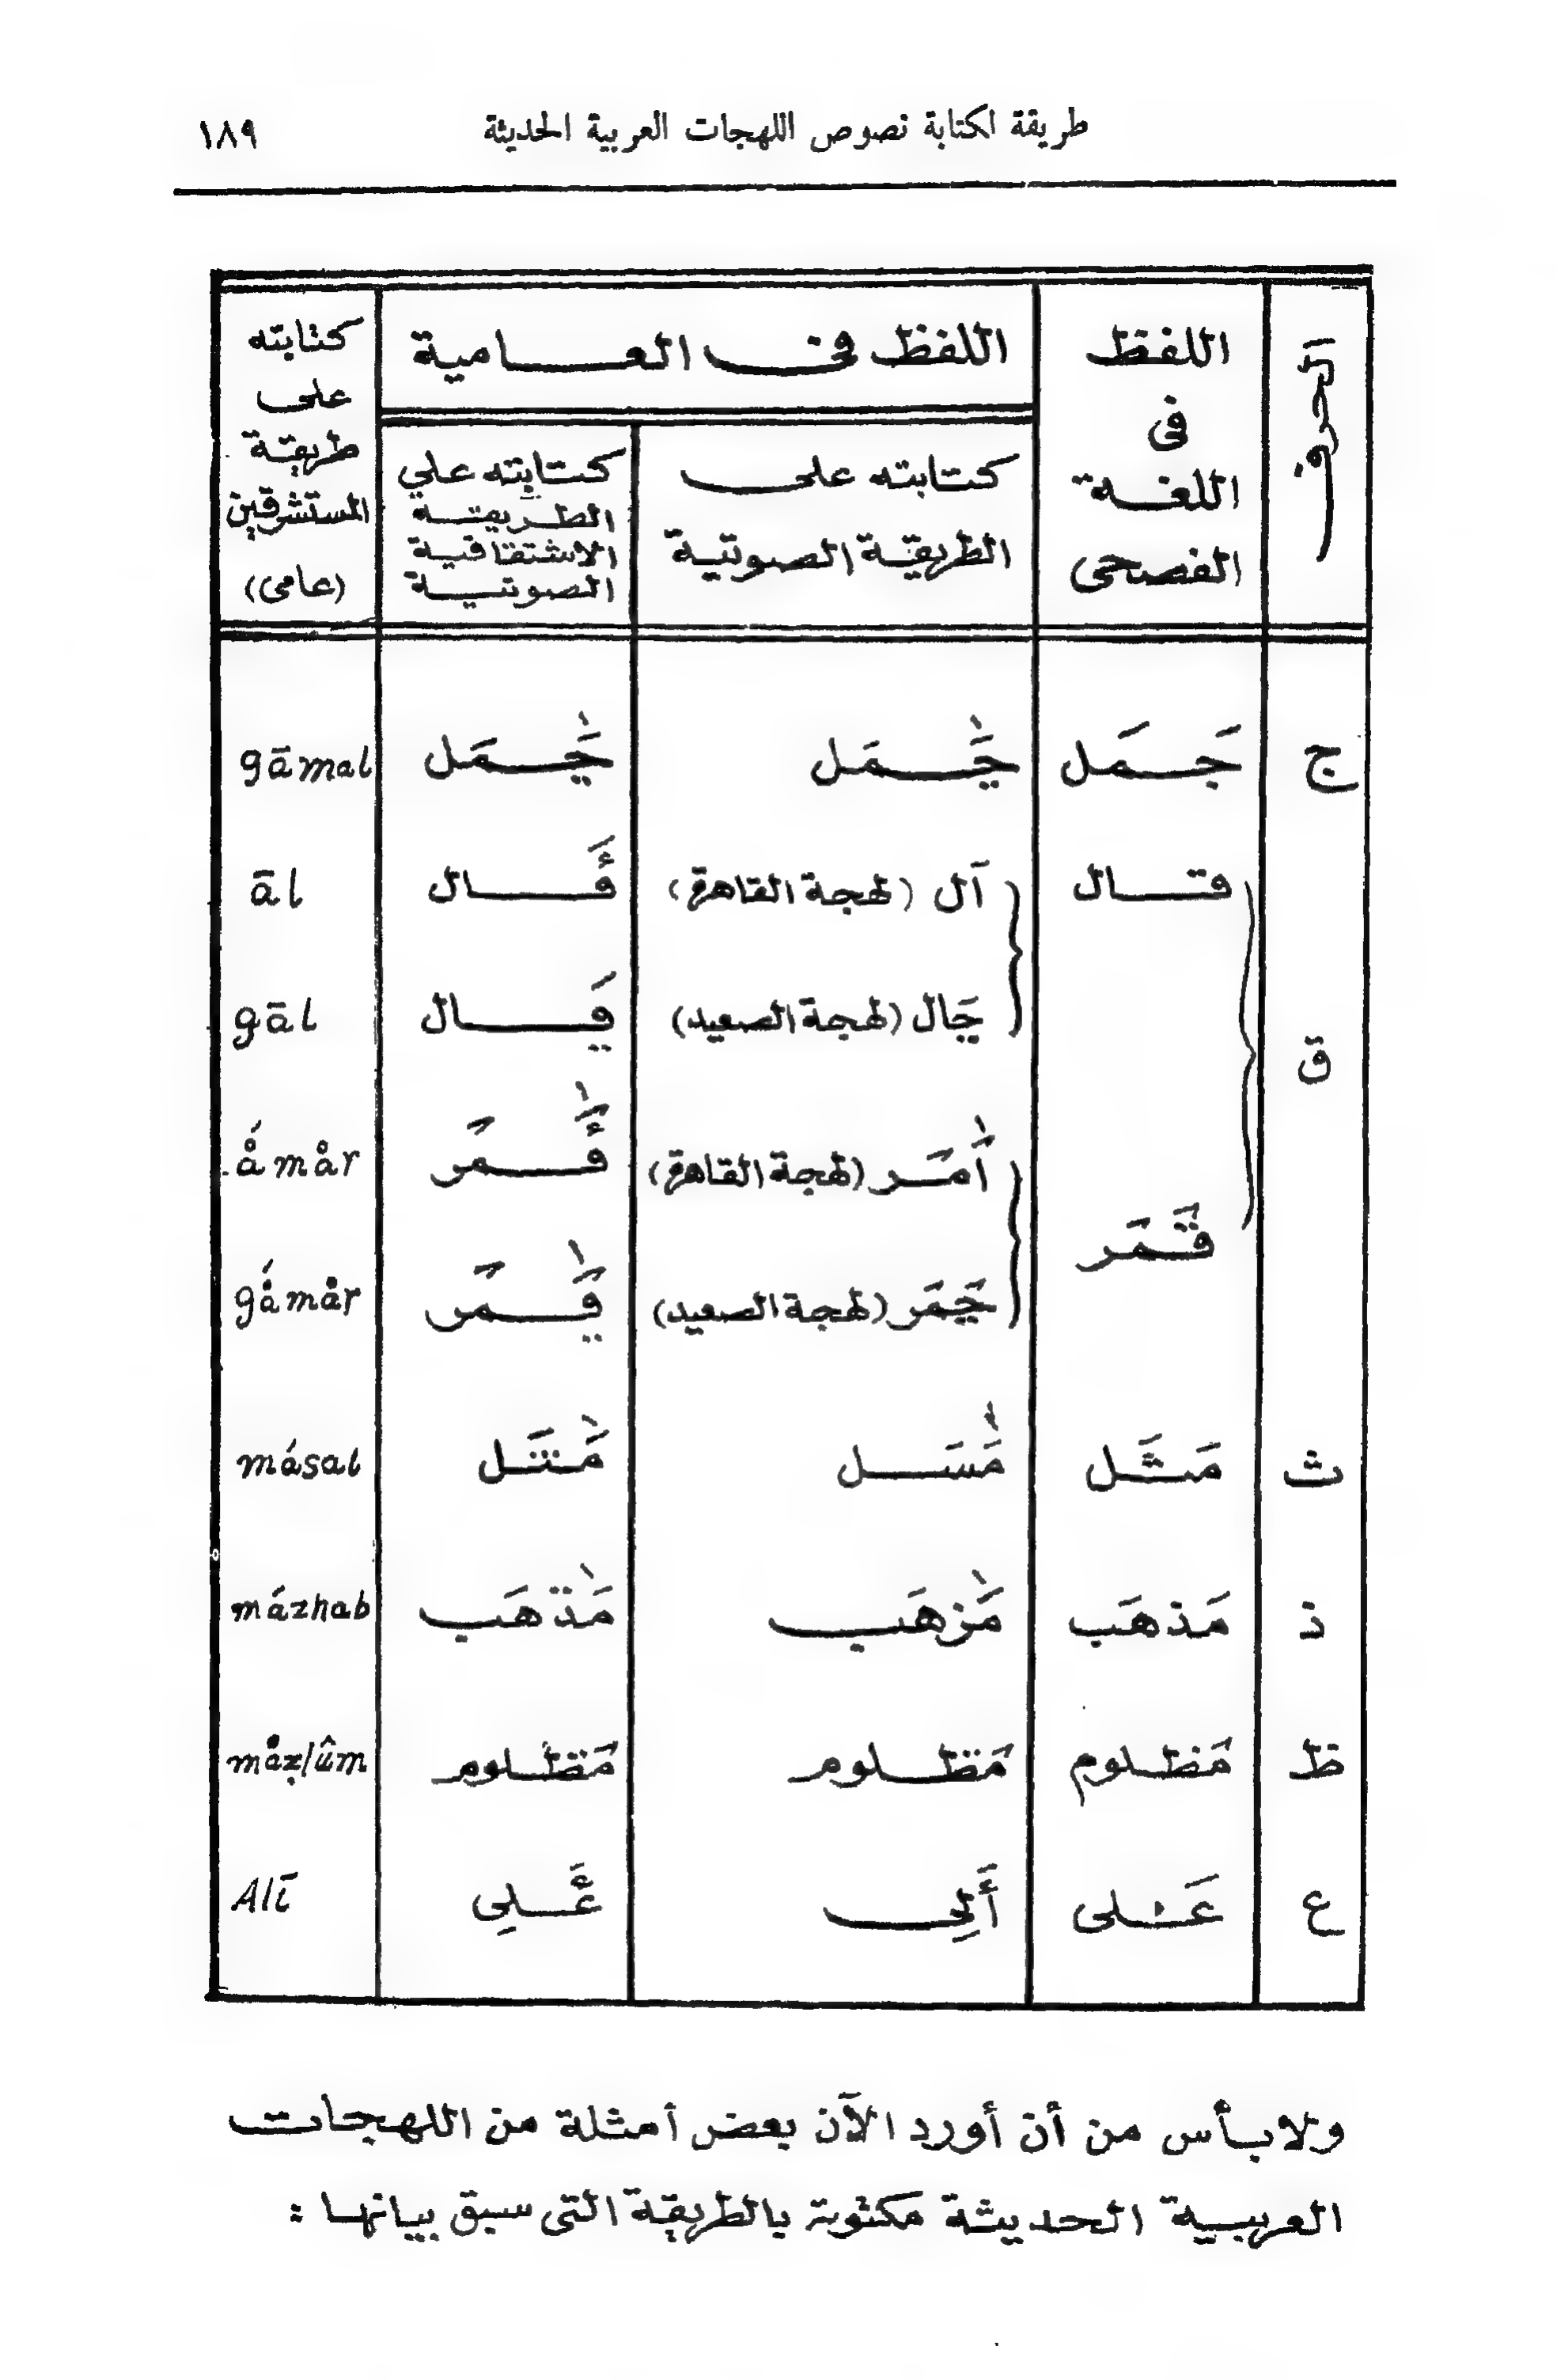 طريقة لكتابة نصوص اللهجات العربية الحديثة ١٨٩
الحرف
اللفظ
فى
اللغة
الفصحى
اللفظ فى العامية
كتابته على
الطريقة الصوتية
كتابته علي
الطريقة
الاشتقاقية
الصوتية
كتابته
على
طريقة
المستشرقين
(عامى)
ج جَمَل جَ̣مَل جَ̣مَل gāmal
قال آل (لهجة القاهرة) قَٔال āl
چَال (لهجة الصعيد) قَال gāl
ق
أمَر (لهجة القاهرة) قَٔمَر ǻmår
قَمَر
چَمَر (لهجة الصعيد) قَمَر gǻmår
ث مَثَل مَسَل مَثَل másal
ذ مَذهَب مَزهَب مَذهَب mázhab
ظ مَظلوم مَظلوم مَظلوم måẓlûm
ع عَلى أَلِى عَٔلِى Alī
ولا بأس من أن أورد الآن بعض أمثلة من اللهجات
العربية الحديثة مكتوبة بالطريقة التى سبق بيانها :